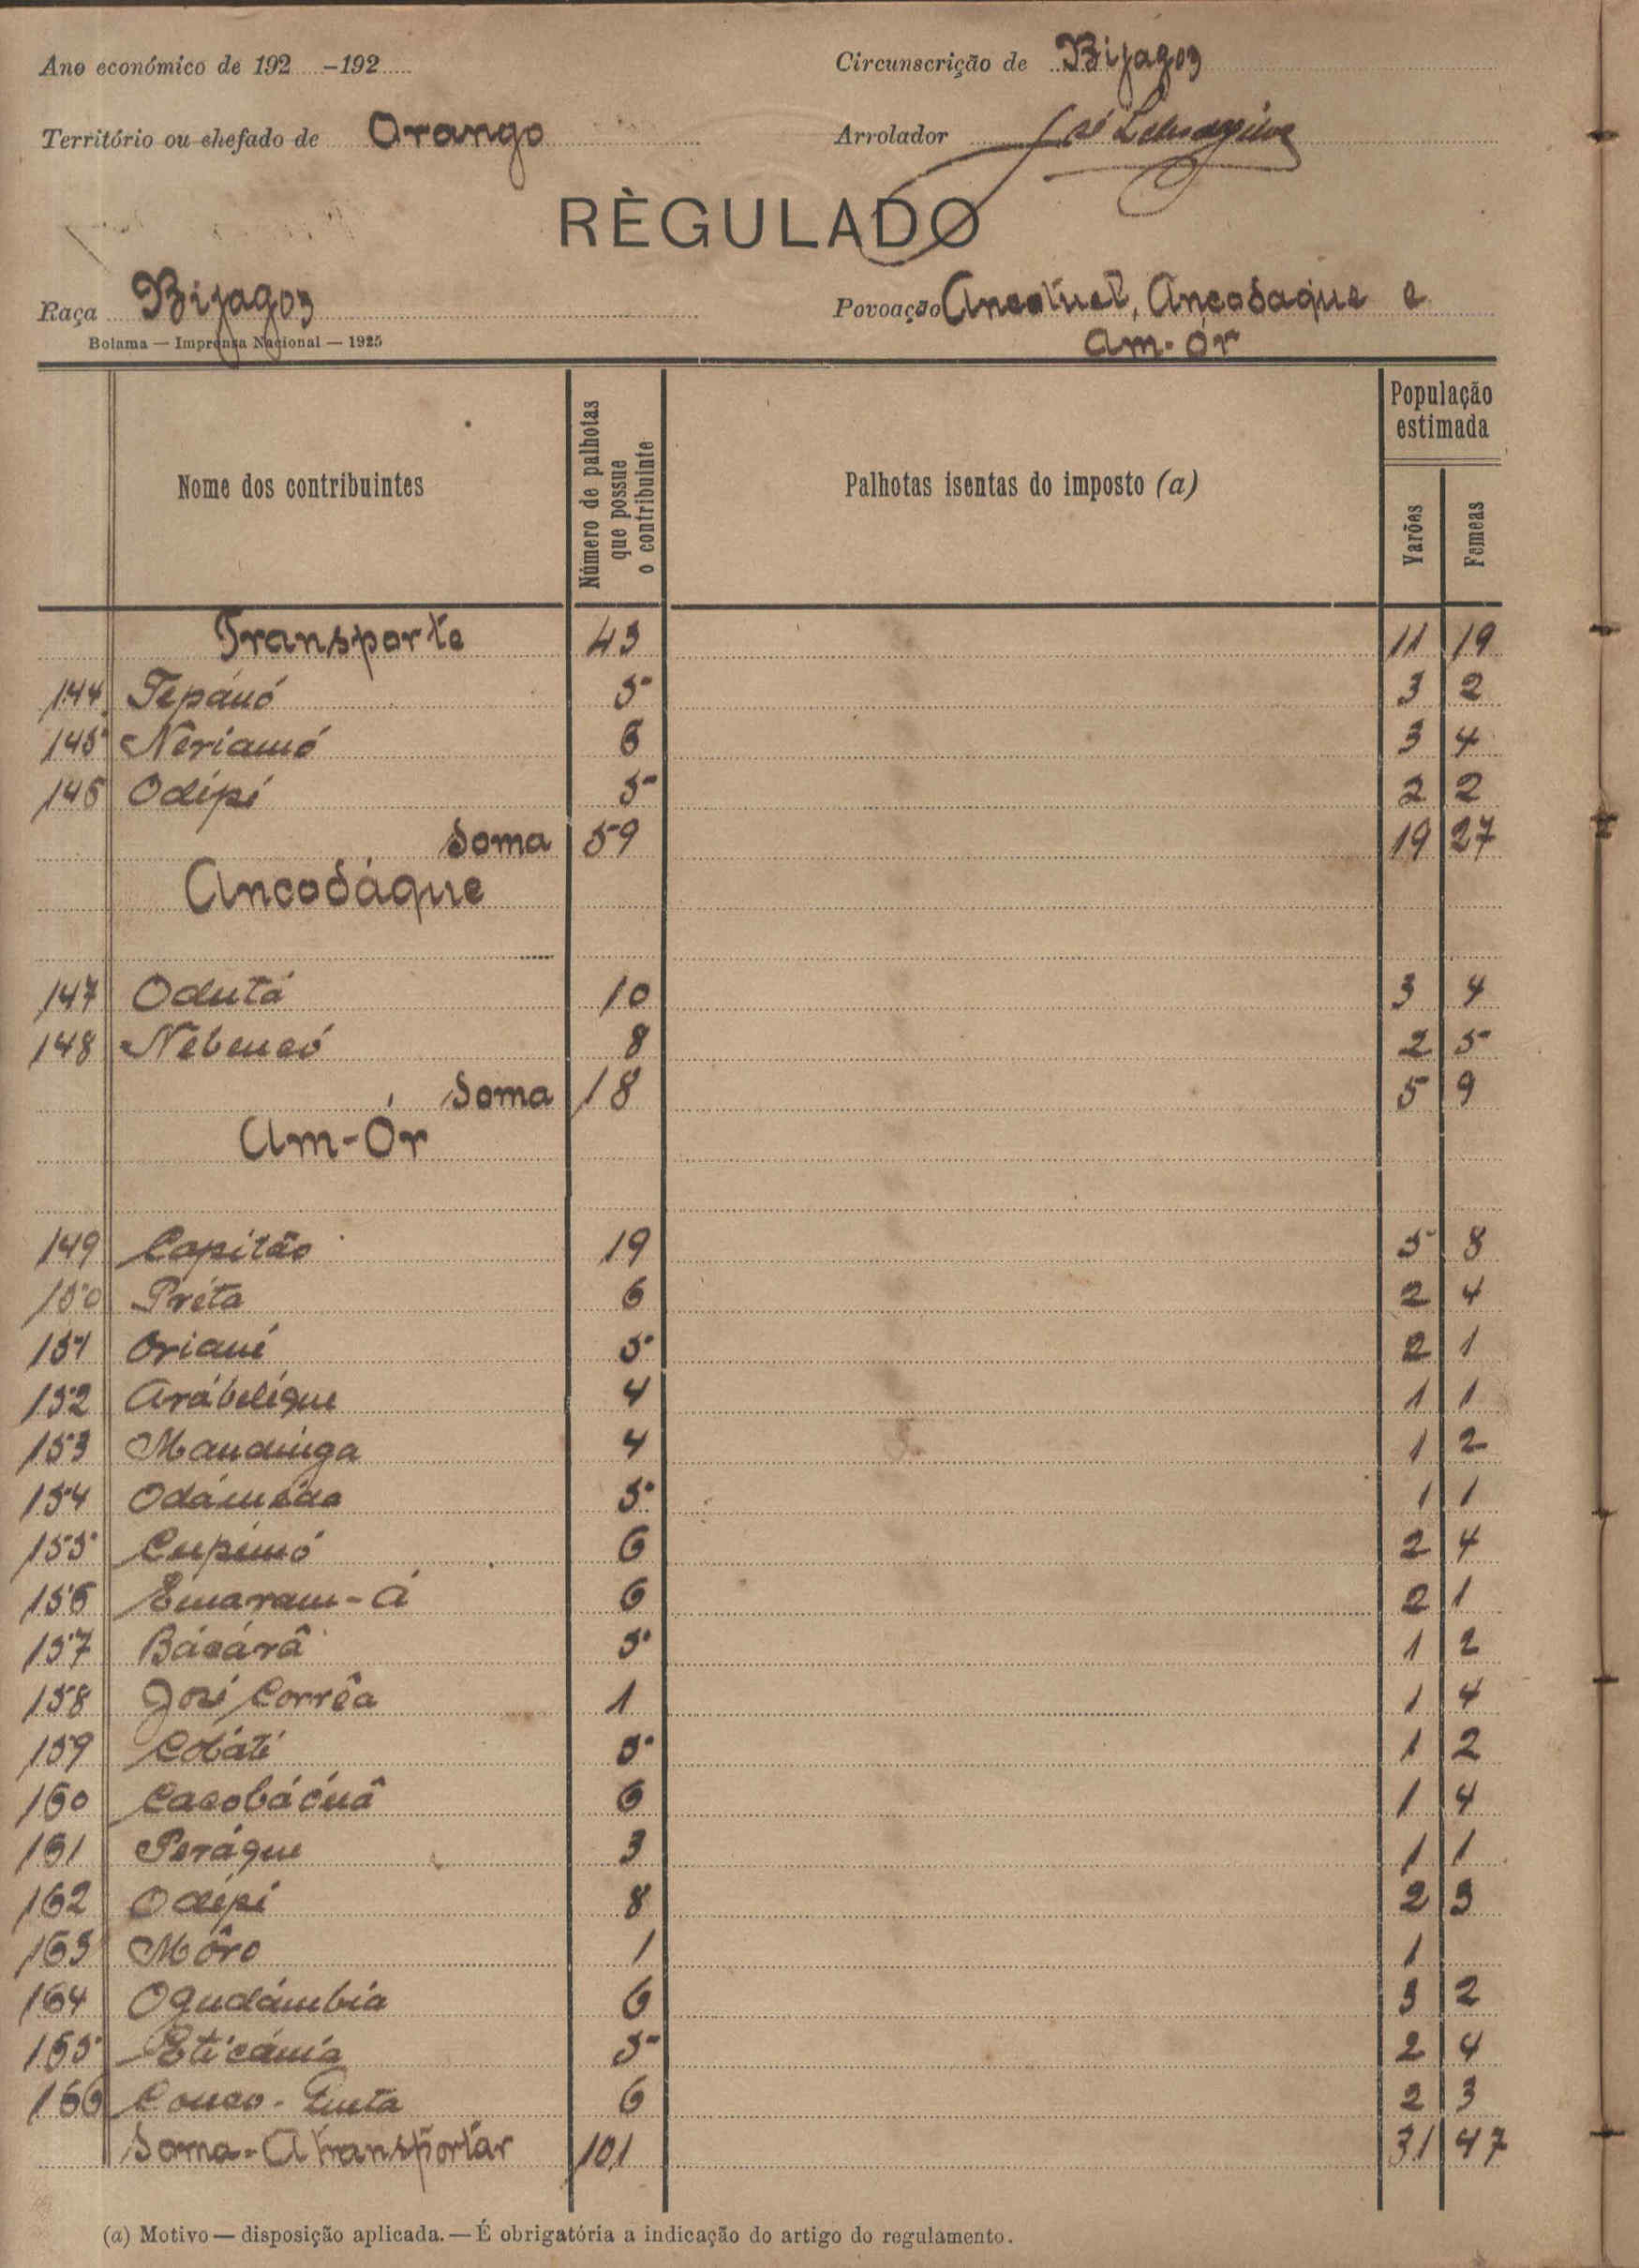 Ano económico de 192 -192
Circunscrição de Bijagoz
Território ou chefado de Orango
Arrolador José
RÈGULADO
Raça Bijagoz
Povoação Ancodaque e
Am-Ór
Bolama — Imprensa Nacional — 1925
Nome dos contribuintes
Número de palhotas que possue o contribuinte
Palhotas isentas do imposto (a)
População estimada
Varões
Femeas
Transporte 43 11 19
144 Tepánó 5 3 2
145 Nêriamó 6 3 4
146 Odípi 5 2 2
Soma 59 19 27
Ancodáque
147 Odutá 10 3 4
148 Nebencó 8 2 5
Soma 18 5 9
Am-Ór
149 Capitão 19 5 8
150 Préta 6 2 4
151 Oriané 5 2 1
152 Arábeléque 4 1 1
153 Mandinga 4 1 2
154 5 1 1
155 Cupinó 6 2 4
156 Emaram-Á 6 2 1
157 Bácárâ 5 1 2
158 José Corrêa 1 1 4
159 Cobáté 5 1 2
160 Cacobácuâ 6 1 4
161 Peráque 3 1 1
162 Odépi 8 2 3
163 Môro 1 1
164 Ogudámbia 6 3 2
165 Eticánia 5 2 4
166 6 2 3
Soma-A transportar 101 31 47
(a) Motivo — disposição aplicada. — É obrigatória a indicação do artigo do regulamento.